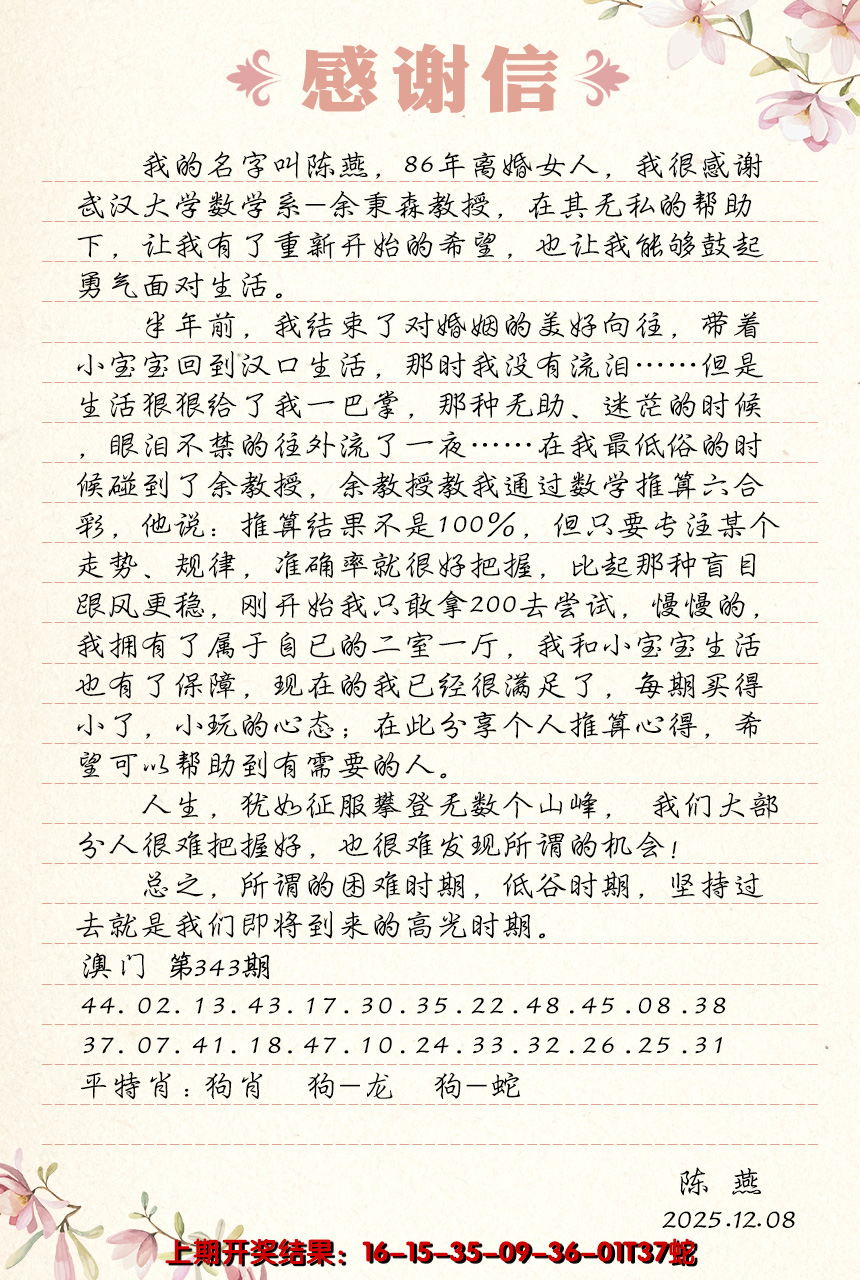 感谢信
我的名字叫陈燕，86年离婚女人，我很感谢
武汉大学数学系-余秉森教授，在其无私的帮助
下，让我有了重新开始的希望，也让我能够鼓起
勇气面对生活。
半年前，我结束了对婚姻的美好向往，带着
小宝宝回到汉口生活，那时我没有流泪……但是
生活狠狠给了我一巴掌，那种无助、迷茫的时候
，眼泪不禁的往外流了一夜……在我最低俗的时
候碰到了余教授，余教授教我通过数学推算六合
彩，他说：推算结果不是100%，但只要专注某个
走势、规律，准确率就很好把握，比起那种盲目
跟风更稳，刚开始我只敢拿200去尝试，慢慢的，
我拥有了属于自已的二室一厅，我和小宝宝生活
也有了保障，现在的我已经很满足了，每期买得
小了，小玩的心态；在此分享个人推算心得，希
望可以帮助到有需要的人。
人生，犹如征服攀登无数个山峰， 我们大部
分人很难把握好，也很难发现所谓的机会！
总之，所谓的困难时期，低谷时期，坚持过
去就是我们即将到来的高光时期。
澳门 第343期
44.02.13.43.17.30.35.22.48.45.08.38
37.07.41.18.47.10.24.33.32.26.25.31
平特肖：狗肖 狗-龙 狗-蛇
陈 燕
2025.12.08
上期开奖结果：16-15-35-09-36-01T37蛇